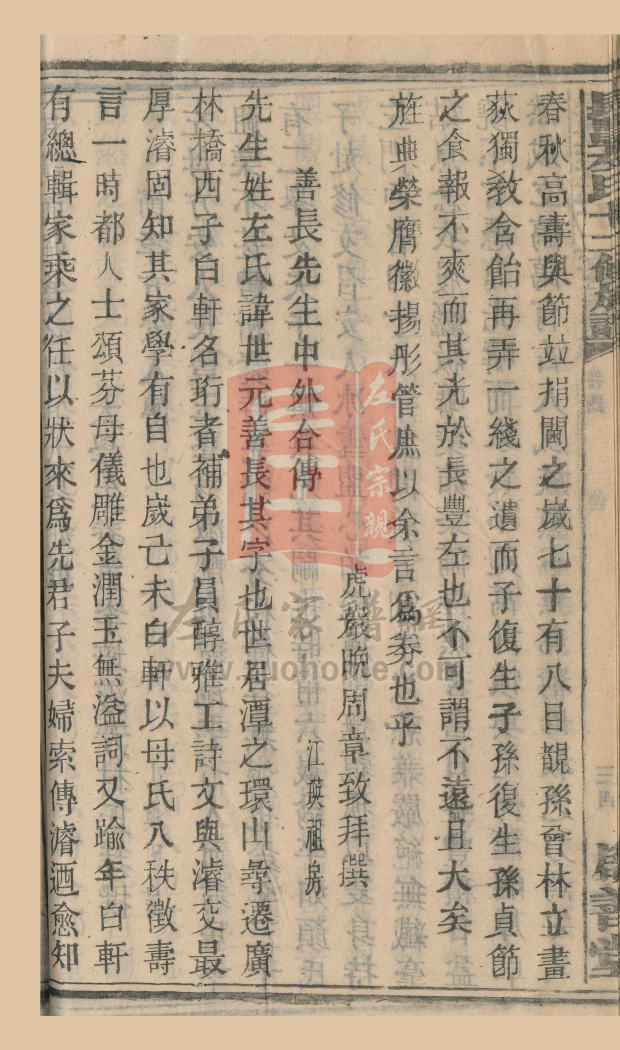 春秋高壽與節並捐閫之歲七十有八目覩孫曾林立畫
荻獨教含飴再弄一綫之遺而子復生子孫復生孫貞節
之食報不爽而其尤於長豐左也不可謂不遠且大矣
旌典榮膺徽揚彤管庶以余言爲券也乎
虎巖晚周章致拜撰
善長先生中外合傳
江英祖房
先生姓左氏諱世元善長其字也世居潭之環山彛遷廣
林橋西子白軒名珩者補弟子員醇雅工詩文與濬交最
厚濬固知其家學有自也歲己未白軒以母氏八秩徵壽
言一時都人士頌芬母儀雕金潤玉無溢詞又踰年白軒
有總輯家乘之任以狀來爲先君子夫婦索傳濬迺愈知
左氏宗親
左氏家譜網
www.zuohome.com